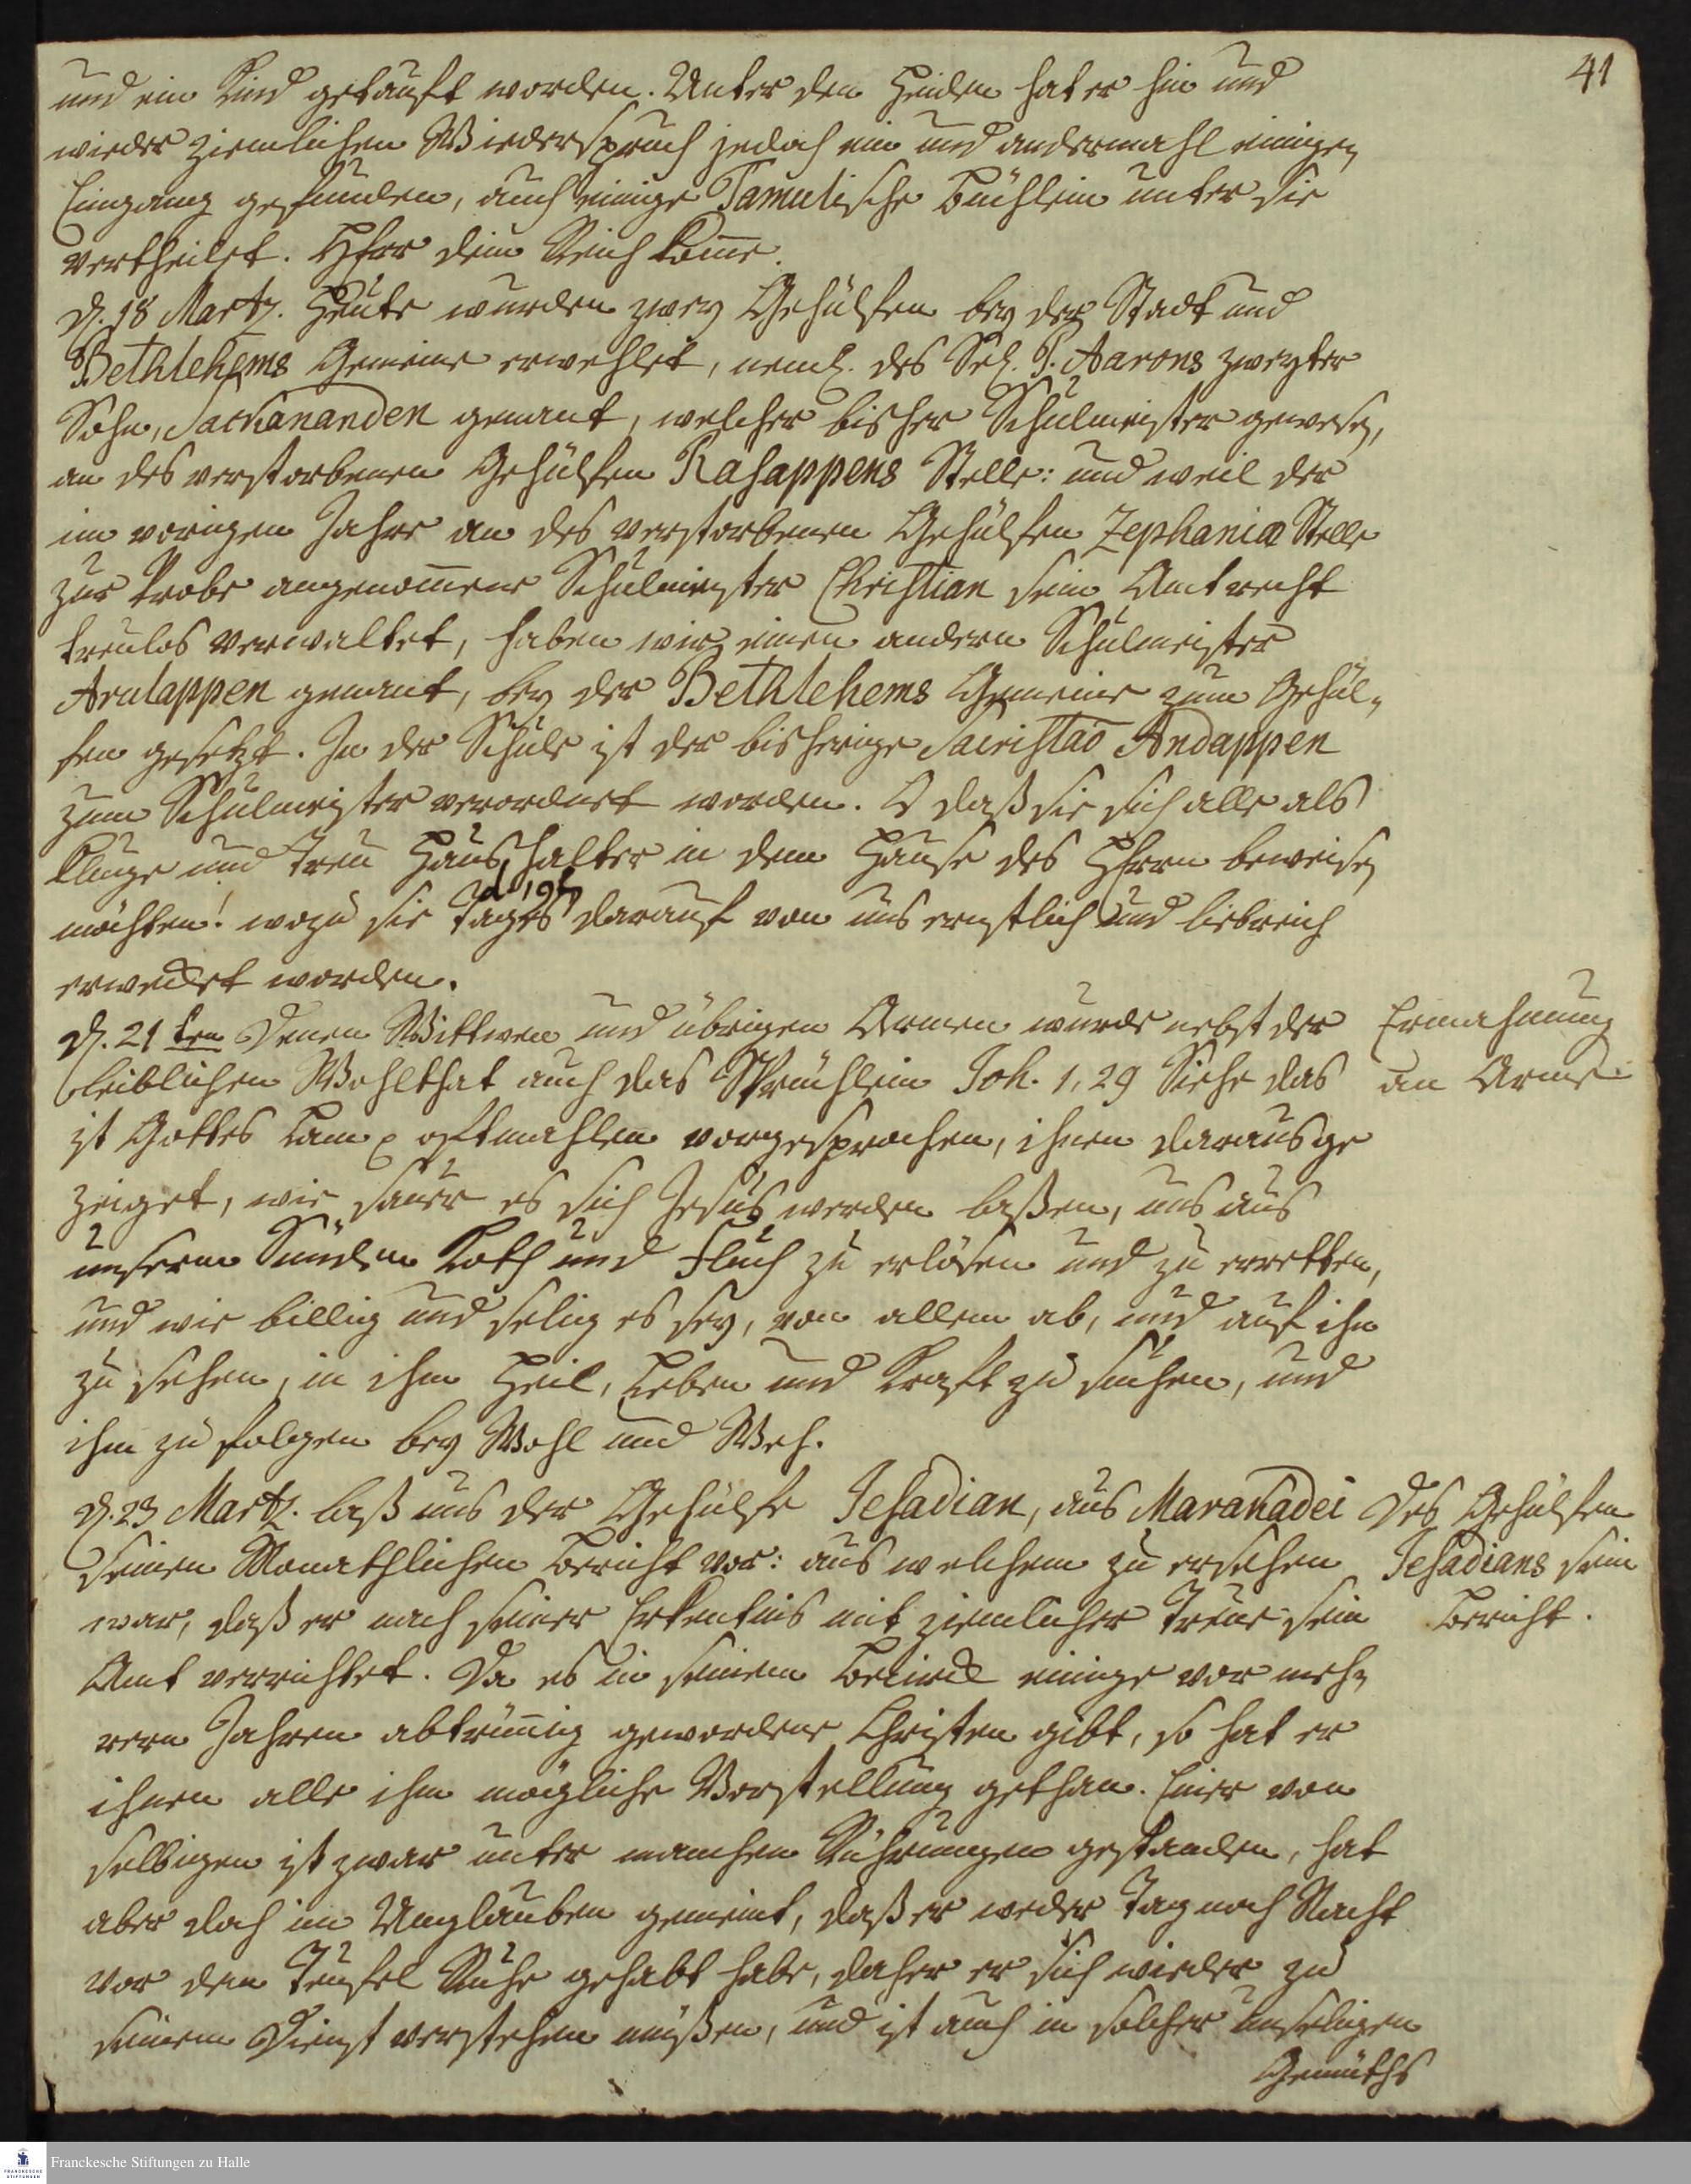 41
und ein Kind getauft worden. Unter den Heiden hat er hin und
wieder ziemlichen Wiederspruch jedoch ein und andermahl einigen
Eingang gefunden, auch einige Tamulische Büchlein unter sie
vertheilet. Herr dein Reich kom̅e.
D. 18 Martz. Heute wurden zwey Gehülfen bey der Stadt und
Bethlehems Gemeine erwehlet, neml. des Sel. P. Aarons zweyter
Sohn, Sackananden genant, welcher bisher Schulmeister gewesen,
an des verstorbenen Gehülfen Rasappens Stelle: und weil der
im vorigen Jahre an des verstorbenen Gehülfen Zephania Stelle
zur Probe angenom̅ene Schulmeister Christian sein Amt recht
treulos verwaltet, haben wir einen andern Schulmeister
Arulappen genant, bey der Bethlehems Gemeine zum Gehül-
fen gesetzt. In der Schule ist der bisherige Sacristaõ Andappen
zum Schulmeister verordnet worden. O daß sie sich alle als
kluge und treu Haushalter in dem Hause des Herrn beweisen
möchten! wozu sie Tages d. 19t darauf von uns ernstlich und liebreich
erwecket worden.
D. 21 ten Denen Wittwen und übrigen Armen wurde nebst der
leiblichen Wohlthat auch das Sprüchlein Joh. 1, 29 Siehe das
ist Gottes Lam p oftmahlen vorgesprochen, ihnen daraus ge
zeiget, wie sauer es sich Jesus werden laßen, uns aus
unserm Sünden Koth und Fluch zu erlösen und zu erretten,
und wie billig und selig es sey, von allem ab, und auf ihn
zu sehen, in ihm Heil, Leben und Kraft zu suchen, und
ihm zu folgen bey Wohl und Weh.
Ermahnung
an Arme.
D. 23 Martz. laß uns der Gehülfe Jesadian, aus Maranadei
seinen Monathlichen Bericht vor: aus welchem zu ersehen
war, daß er nach seiner Erkentnis mit ziemlicher Treue sein
Amt verrichtet. Da es in seinem Bezirck einige vor meh-
rern Jahren abtrün̅ig gewordene Christen gibt, so hat er
ihnen alle ihm mögliche Vorstellung gethan. Einer von
selbigen ist zwar unter manchen Rührungen gestanden, hat
aber doch im Unglauben gemeint, daß er weder Tag noch Nacht
vor dem Teufel Ruhe gehabt habe, daher er sich wieder zu
seinem Dienst verstehen müßen, und ist auch in solcher unseligen
Gemüths
Des Gehülfen
Jesadians sein
Bericht.
Franckesche Stiftungen zu Halle
FRANCKESCHE
STIFTUNGEN